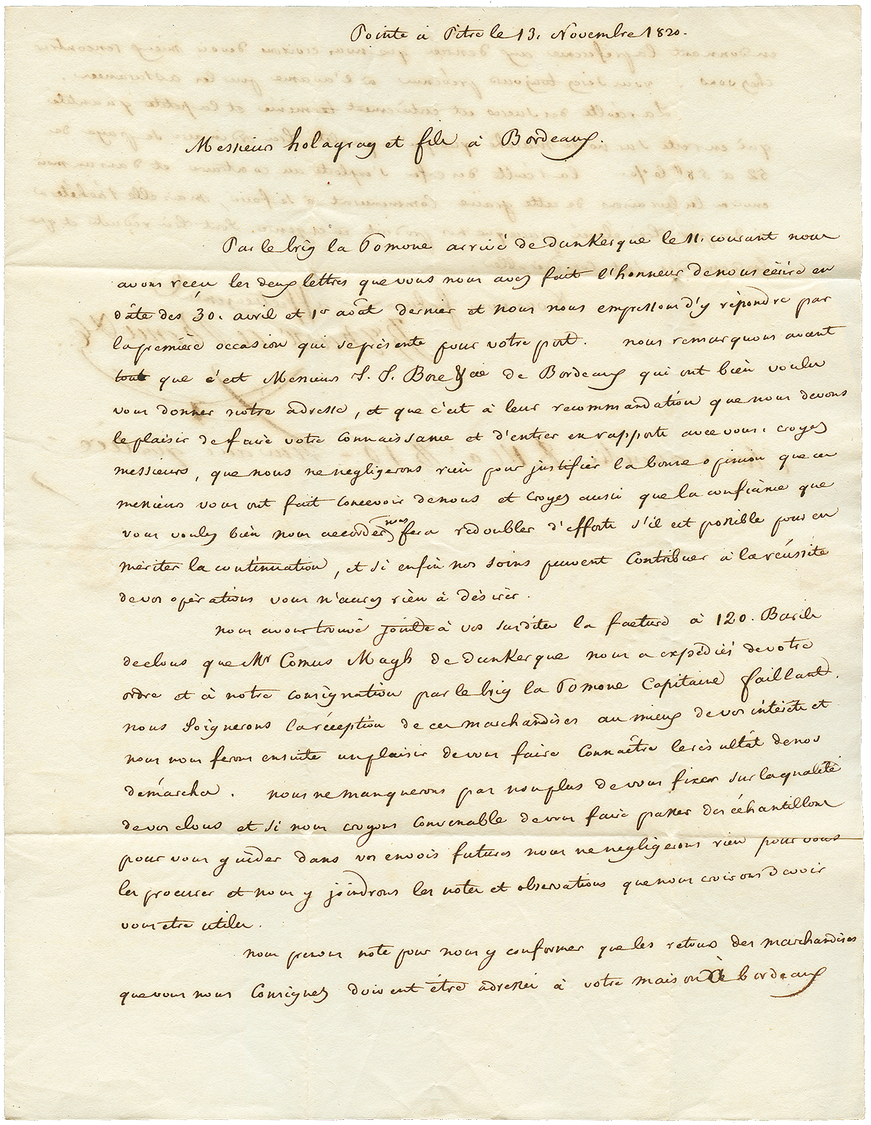 Pointe à Pitre le 13. Novembre 1820.
Messieurs holagray et fils à Bordeaux.
Par le brig la Pomone arrivé de dunkerque le 11. courant nous
avons reçu les deux lettres que vous nous avez fait l'honneur de nous écrire en
dâte des 30. avril et 1er août dernier et nous nous empressons d'y répondre par
la première occasion qui se présente pour votre port. nous remarquons avant
tout que c'est Messieurs J. J. Bosc & cie de Bordeaux qui ont bien voulu
vous donner notre adresse, et que c'est à leur recommandation que nous devons
le plaisir de faire votre connaissance et d'entrer en rapports avec vous. croyez
messieurs, que nous ne negligerons rien pour justifier la bonne opinion que ces
messieurs vous ont fait concevoir de nous et croyez aussi que la confiance que
vous voulez bien nous accorder nous fera redoubler d'efforts s'il est possible pour en
mériter la continuation, et si enfin nos soins peuvent contribuer à la réussite
de vos opérations vous n'aurez rien à désirer.
nous avons trouvé jointe à vos susdites la facture à 120. Barils
de clous que Mr Comus Magh de dunkerque nous a expédiés de votre
ordre et à notre consignation par le brig la Pomone Capitaine faillant.
nous soignerons la réception de ces marchandises au mieux de vos intérêts et
nous nous ferons ensuite un plaisir de vous faire connaître le résultat de nos
démarches. nous ne manquerons pas non plus de vous fixer sur la qualité
de vos clous et si nous croyons convenable de vous faire passer des échantillons
pour vous guider dans vos envois futurs nous ne negligerons rien pour vous
les procurer et nous y joindrons les notes et observations que nous croirons d'avoir
vous être utiles.
nous prenons note pour nous y conformer que les retours des marchandises
que vous nous consignez doivent être adressés à votre maison à bordeaux